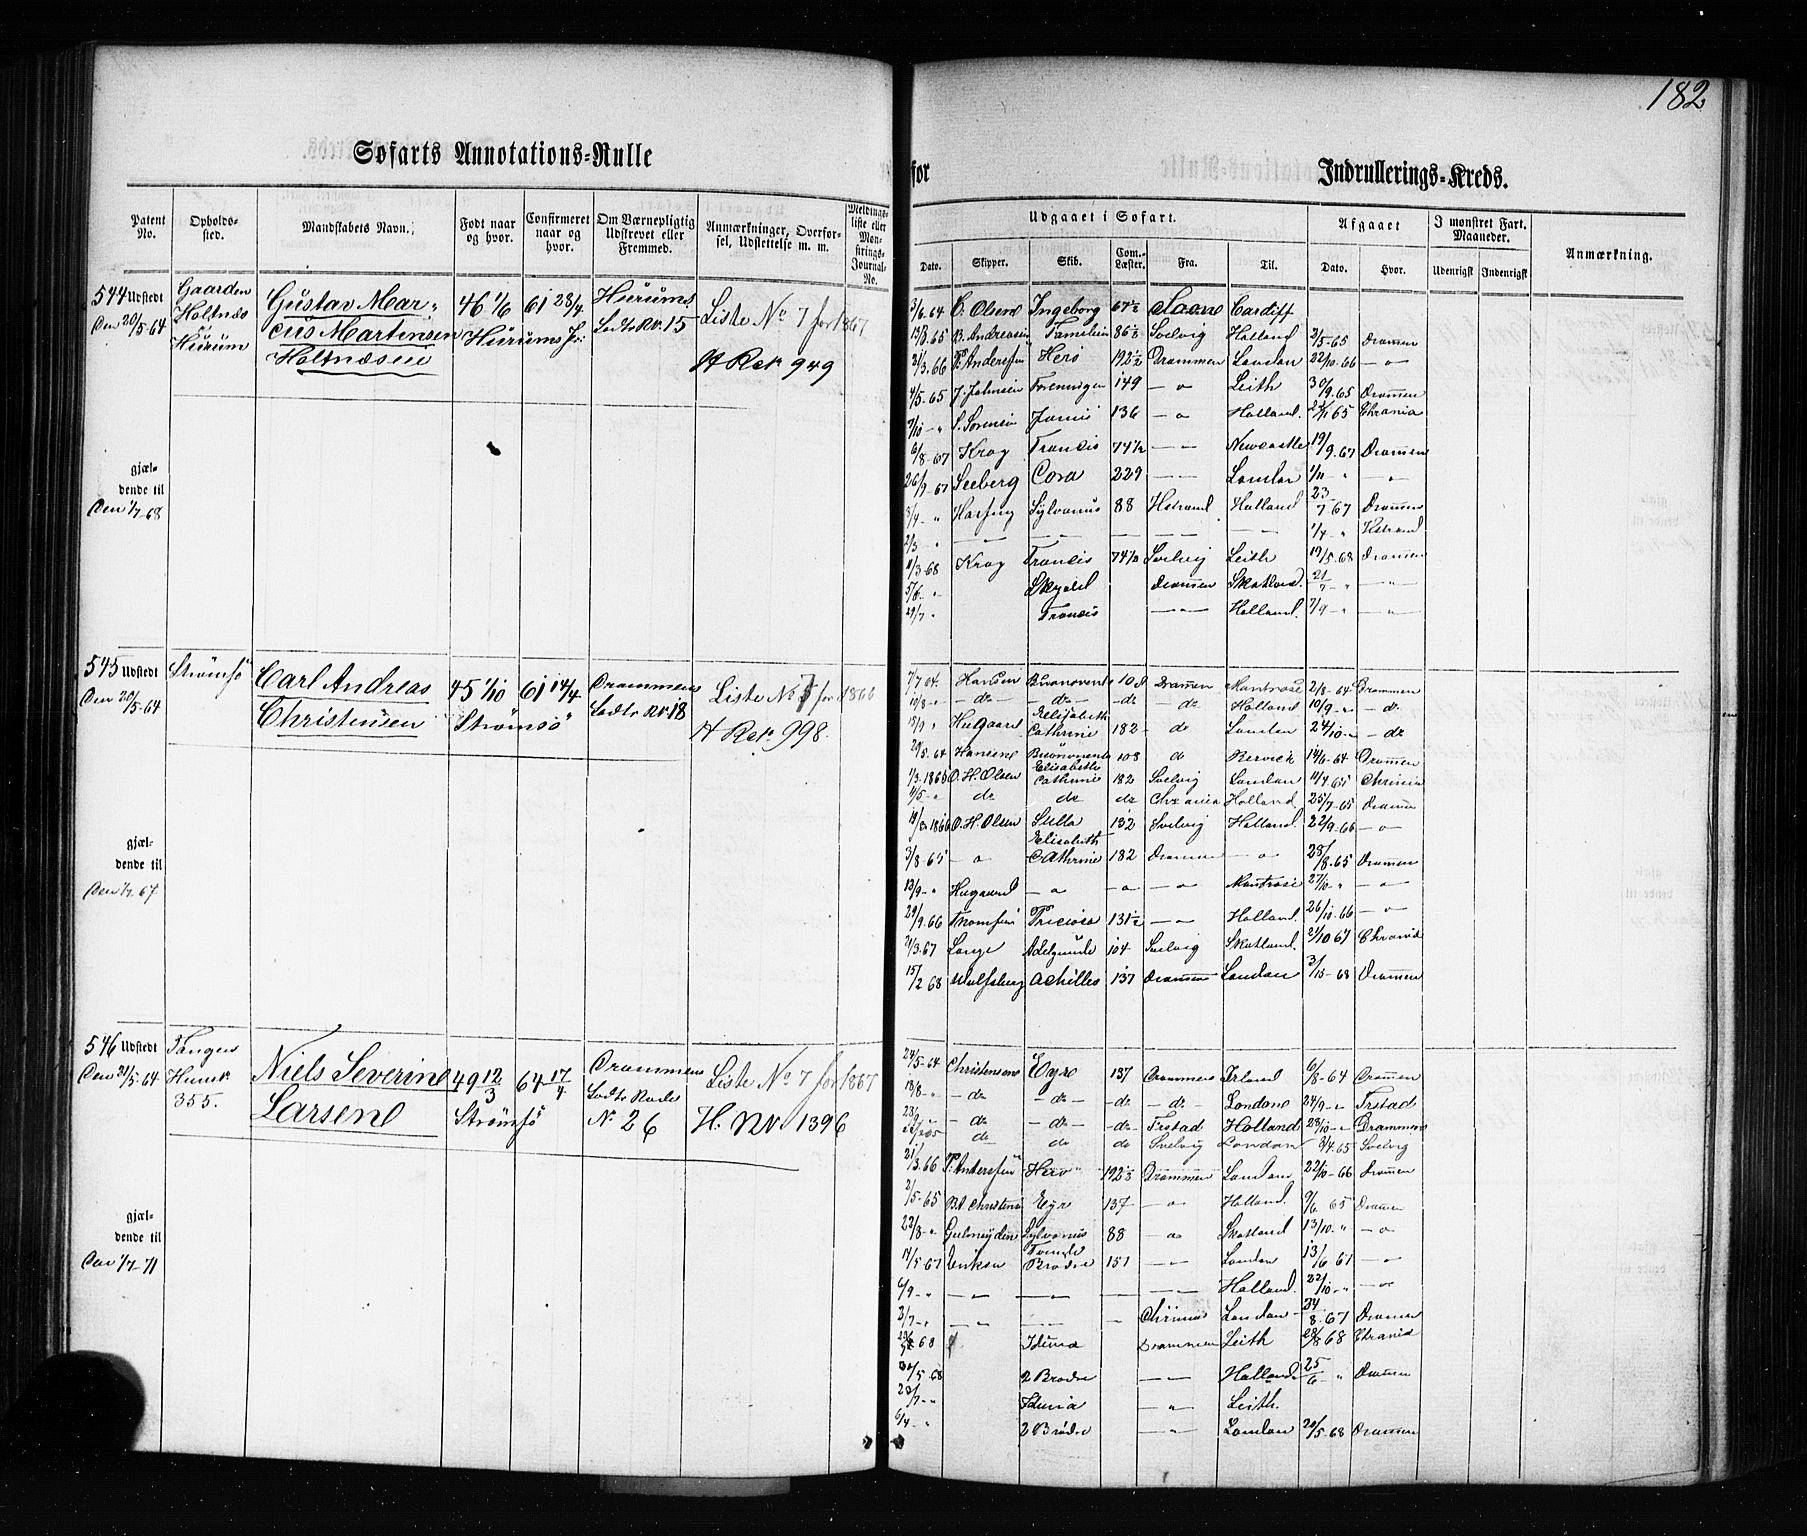 182
Søfarts Annotations-Rulle
for Indrullerings-Kreds.
Patent No. | Opholds-sted. | Mandskabets Navn. | Født naar og hvor. | Confirmeret naar og hvor. | Om Værnepligtig Udskrevet eller Fremmed. | Anmærkninger, Overførsel, Udslettelse m. m. | Meldings-liste eller Mønstrings-Journal-No.
Udgaaet i Søfart. | Afgaaet | I mønstret Fart. Maaneder. | Anmærkning.
Dato. | Skipper. | Skib. | Com.-Læster. | Fra. | Til. | Dato. | Hvor. | Udenrigsk | Indenrigsk
544 Udstedt
Den 20/5-64
Gaarden
Holtnæs
Hurum
Gustav Mar-
cus Martinsen
Holtnæsen
46 1/6
61 28/4
Hurums
Lodts Nr. 15
Liste No 7 for 1867
A Rek 949
gjæl-
dende til
Den 1/7-68
3/6.64 O. Olsens Ingeborg 67½ Cardiff
B. Andreasen Familien 86½ Svelvig Holland 2/5-65 Drammen
2/3.66 P. Andersen Hero 192½ Drammen London 22/10.66 -"-
4/5.65 J. Johnsen Foreningen 149 -"- Leith 30/9.65 Drammen
S. Sørensen 136 -"- Holland. Chrania
6/8-67 Krog Francis 74½ -"- Newcastle 19/9.67 Drammen
26/9-67 Seeberg Cora 229 -"- London 1/11 " -"-
8/4-" Sylvanus 88 Holland 23/7 67 Drammen
2/3 " -"- -"- -"- -"- 1/4-"
11/3-68 Krog Francis 74½ Svelvig Leith 19/5.68 Drammen
Drammen Skotland. 21/7 " -"-
29/7-" Francis -"- Holland. 7/9-" -"-
545 Udstedt
Den 20/5-64
Strømsø
Carl Andreas
Christensen
45 1/10
Strømsø
61 14/4
Drammens
Lodts Nr. 18
Liste No 7 for 1866
A Rek. 998.
gjæl-
dende til
Den 1/7-67
7/7 64. Hansen Buonovento 108 Drammen Montrose 2/8-64 Drammen
-do- -do- -do- -do- Holland. 10/9-" -do-
15/9 " Hugaard Elisabeth Cathrine 182 -do- London 24/10-" -do-
20/5.64 Hansene Buonovento 108 do Bervick 14/6-64 Drammen
1/3.1865 O. H. Olsen Elisabeth Cathrine 182 Svelvig London 11/4 65 Chrania
11/5-" do do do Chrania Holland. 25/7-65 Drammen
O. H. Olsen Sulla 132 Svelvig Holland. 22/9-66 -"-
3/8-65 -"- Elisabeth Cathrine 182 Drammen -"- 28/8.65 Drammen
13/9-" Hugaard -"- -"- -"- Montrose 27/10-" -"-
29/9.66 Thomsen 131½ -"- Holland. 26/10-66 -"-
Lange Adelgunde 104 Svelvig Skotland. 21/10 67 Chrania
15/2 68 Wulfsberg Achilles 137 Drammen London Drammen
546 Udstedt
Den 21/5-64
Tangen
355.
Niels Severine
Larsen
49 12/3
Strømsø
64 17/4
Drammens
Lodts Rulle
No 26
Liste No 7 for 1867
H. Nr. 1396
gjæl-
dende til
Den 1/7-71
24/5-64 Christensene Eyre 137 Drammen Irland 6/8-64 Drammen
18/8-" -do- -do- -do- -do- Londone 24/9-" Frstad
-do- -do- -do- Frstad Holland 23/10-" Drammen
do do do Svelvig London 3/4.65 Svelvig
21/3.66 P. Andersen Hero 192½ Drammen London 22/10-66 Drammen
2/5-65 Eyr 137 -"- Holland. 9/6 65 Drammen
22/8-" Gulmeyden Sylvanus 88 -"- Skotland 13/10-" -"-
17/5.67 Tvende Brødre 151 -"- London 13/6 67 -"-
6/9-" -"- -"- Holland. 22/10-" -"-
3/7-" -"- -"- " London 24/8-67 Drammen
Iduna Drammen Leith 28/8 68 Chrania
30/5-68 2 Brødre -"- Holland 25/6-" Drammen
Iduna -"- Leith.
6/4-" 2 Brødre -"- London 20/5-68 Drammen